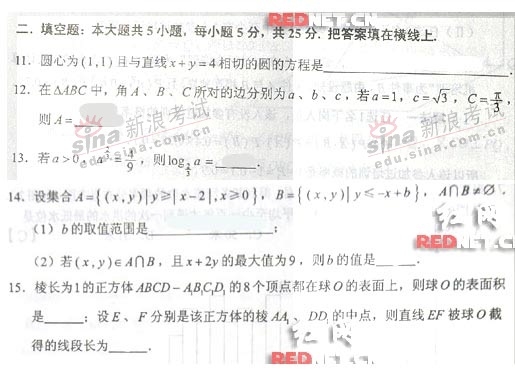 REDNET.CN
二. 填空题: 本大题共5小题, 每小题5分, 共25分. 把答案填在横线上.
11. 圆心为(1,1)且与直线x+y=4相切的圆的方程是
12. 在△ABC中, 角A、B、C所对的边分别为a、b、c, 若a=1, c=√3, C=π/3,
则A=
sina 新浪考试
edu.sina.com.cn
sina 新浪考试
edu.sina.com.cn
13. 若a>0, a^(2/3)=4/9, 则log_(2/3) a=
14. 设集合A={(x,y)|y≥|x-2|,x≥0}, B={(x,y)|y≤-x+b}, A∩B≠∅.
(1) b的取值范围是 ;
(2) 若(x,y)∈A∩B, 且x+2y的最大值为9, 则b的值是 .
红网
REDNET.CN
15. 棱长为1的正方体ABCD-A₁B₁C₁D₁的8个顶点都在球O的表面上, 则球O的表面积
是 ; 设E、F分别是该正方体的棱AA₁、DD₁的中点, 则直线EF被球O截
得的线段长为 .
REDNET.CN